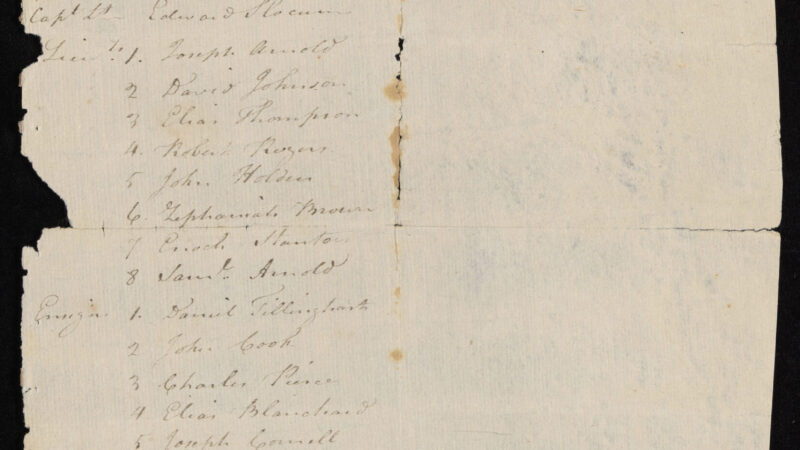 Capt Lt Edward Slocum
Lieuts 1. Joseph Arnold
2 David Johnson
3 Elias Thompson
4. Robert Rogers
5 John Holden
6. Zephaniah Brown
7 Enoch Stanton
8 Saml. Arnold
Ensign 1. Daniel Tillinghast
2 John Cook
3 Charles Pierce
4 Elias Blanchard
5 Joseph Cornell